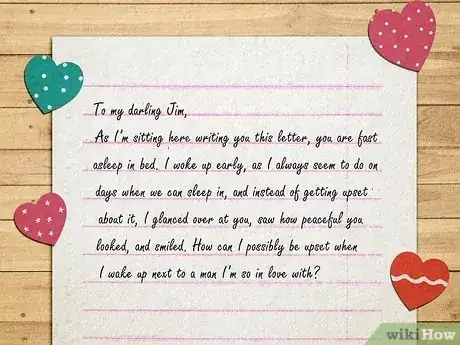 To my darling Jim,
As I'm sitting here writing you this letter, you are fast
asleep in bed. I woke up early, as I always seem to do on
days when we can sleep in, and instead of getting upset
about it, I glanced over at you, saw how peaceful you
looked, and smiled. How can I possibly be upset when
I wake up next to a man I'm so in love with?
wikiHow